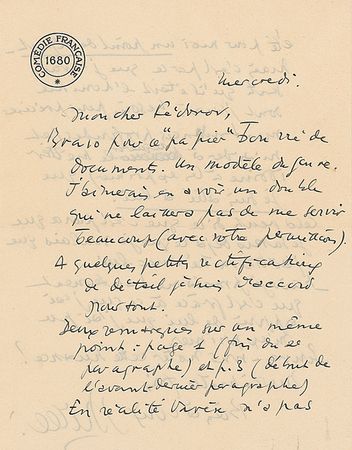 COMÉDIE FRANÇAISE
1680
mercredi.
mon cher Fédorov,
Bravo pour ce "papier" bourré de
documents. Un modèle du genre.
J'aimerais en avoir un double
qui ne laissera pas de me servir
beaucoup (avec votre permission).
A quelques petits rectifications
de détail je suis d'accord
partout.
Deux remarques sur un même
point : page 1 (fin du
paragraphe) et p. 3 (début de
l'avant-dernier paragraphe)
En réalité n'a pas